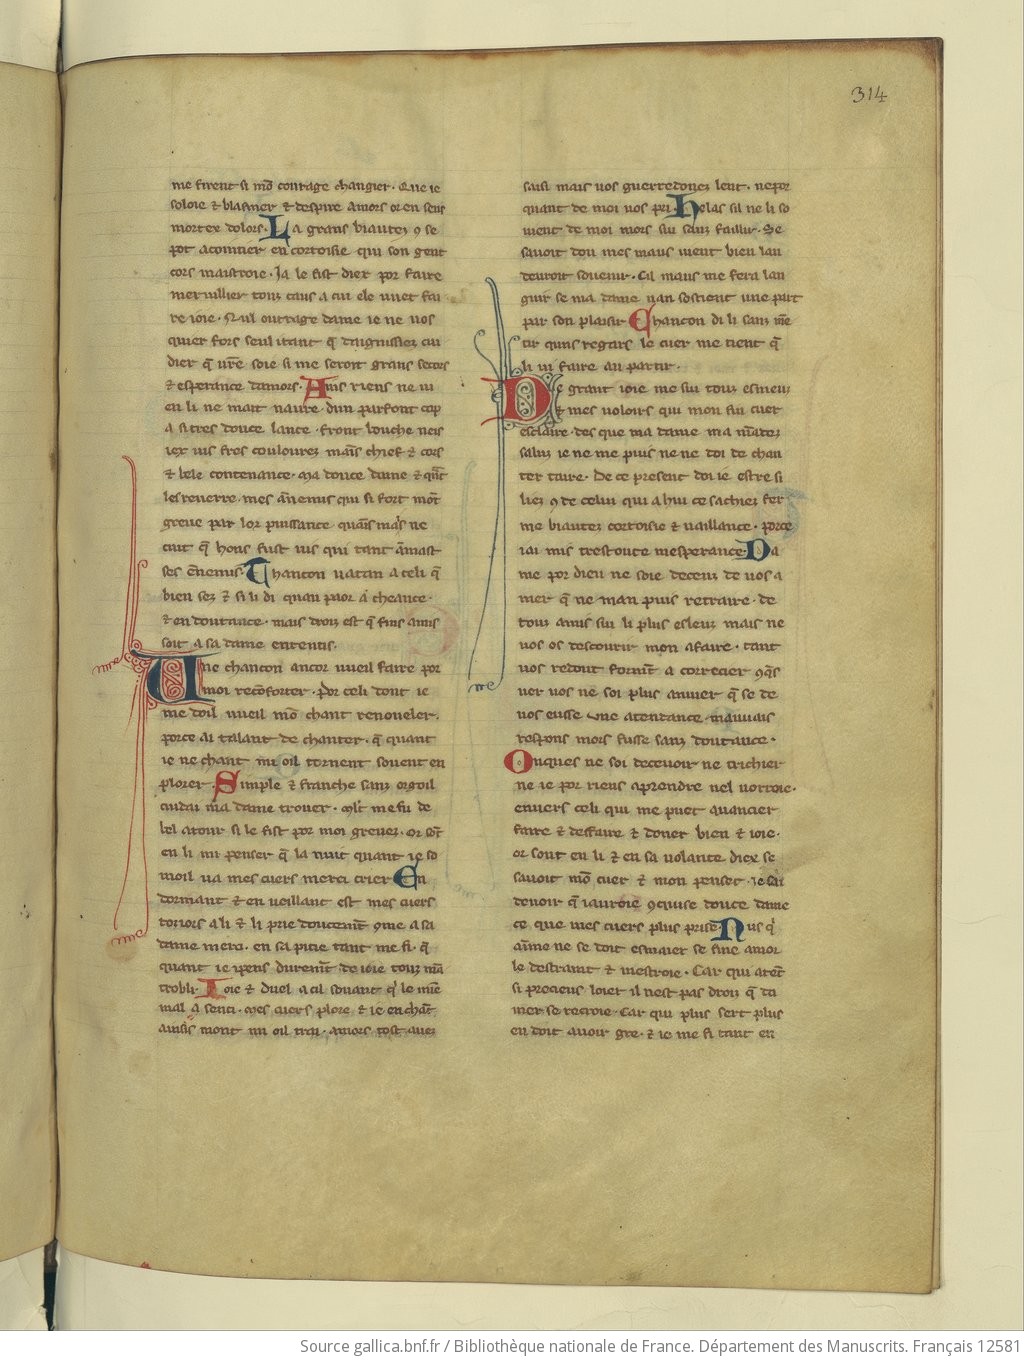 314
me firent si mō corage changier. Que ie
soloie ⁊ blasmer ⁊ despire amors or en sent
mortex dolors. La grans biautez ꝯ se
pot acointier en cortoisie qui son gent
cors maistroie. Ja le fist diex por faire
merveillier touz caus a cui ele vuet fai
re ioie. Nul outrage dame ie ne vos
quier fors seul itant q̄ daignissiez cui
dier q̄ vr̄e soie si me seroit grans secors
⁊ esperance damors. Ains riens ne vi
en li ne mait navre. dun parfont cop
a sa tres douce lance. front bouche neis
iex vis fres coulourez mains chief ⁊ cors
⁊ bele contenance. Ma douce dame ⁊ qn̄t
les reverre. mes anemis qui si fort mōt
greve par lor puissance. quains mais ne
cuit q̄ hons fust vis qui tant amast
ses enemis. Chancon va ten a celi q̄
bien sez ⁊ si li di quan paor a cheance.
⁊ en doutance. mais droiz est q̄ fins amis
soit a sa dame ententis.
Une chancon ancor vueil faire por
moi recōforter. Por celi dont ie
me doil vueil mō chant renoveler.
porce ai talant de chanter. q̄ quant
ie ne chant mi oil tornent sovent en
plorer. Simple ⁊ franche sanz orgoil
cuidai ma dame trover. mlt me fu de
bel atour si le fist por moi grever. or sōt
en li mi penser q̄ la nuit quant ie so
moil va mes cuers merci crier. En
dormant ⁊ en veillant est mes cuers
toriors a li ⁊ li prie doucemēt ꝯme a sa
dame merci. en sa pitie tant me fi. q̄
quant ie i pens durement de ioie touz m̄
trobli. Ioie ⁊ duel a cil sovant q̄ le mien
mal a senti. Mes cuers plore ⁊ ie en chāt
ainsis mont mi oil trai. amors tost avez
saisi mais vos guerredonez lent. ne por
quant de moi vos pri. Helas sil ne li so
vient de moi mors sui sanz faillir. Se
savoit dou mes maus vient bien lan
devroit sovenir. Cil maus me fera lan
guir se ma dame nan sostient une part
par son plaisir. Chancon di li sanz mē
tir quns regars le cuer me tient q̄
li vi faire au partir.
De grant ioie me sui touz esmeuz
⁊ mes voloirs qui mon fin cuer
esclaire. des que ma dame ma māde
saluz ie ne me puis ne ne doi de chan
ter taire. De ce present doi ie estre si
liez ꝯ de celui qui a hui ce sachiez fer
me biautez cortoisie ⁊ vaillance. porce
iai mis trestoute mesperance. Da
me por dieu ne soie deceuz de vos a
mer q̄ ne man puis retraire. de
touz amis sui li plus esleuz mais ne
vos os descovrir mon afaire. tant
vos redout formēt a correcier ꝯqs
ver vos ne soi plus anvier q̄ se de
vos eusse une atendance. mauvais
respons mors fusse sanz doutance.
Onques ne soi decevoir ne trichier
ne ie por riens aprendre nel vorroie.
envers celi qui me puet avancier
faire ⁊ desfaire ⁊ doner bien ⁊ ioie.
or sont en li ⁊ en sa volante diex se
savoit mō cuer ⁊ mon penser. ie sai
devoir q̄ iauroie ꝯquise douce dame
ce que mes cuers plus prise. Nus q̄
aīme ne se doit esmaier se fine amor
le destraint ⁊ mestroie. Car qui atēt
si precieus loier il nest pas droiz q̄ da
mer se recroie. Car qui plus sert plus
en doit avoir gre. ⁊ ie me fi tant en
Source gallica.bnf.fr / Bibliothèque nationale de France. Département des Manuscrits. Français 12581